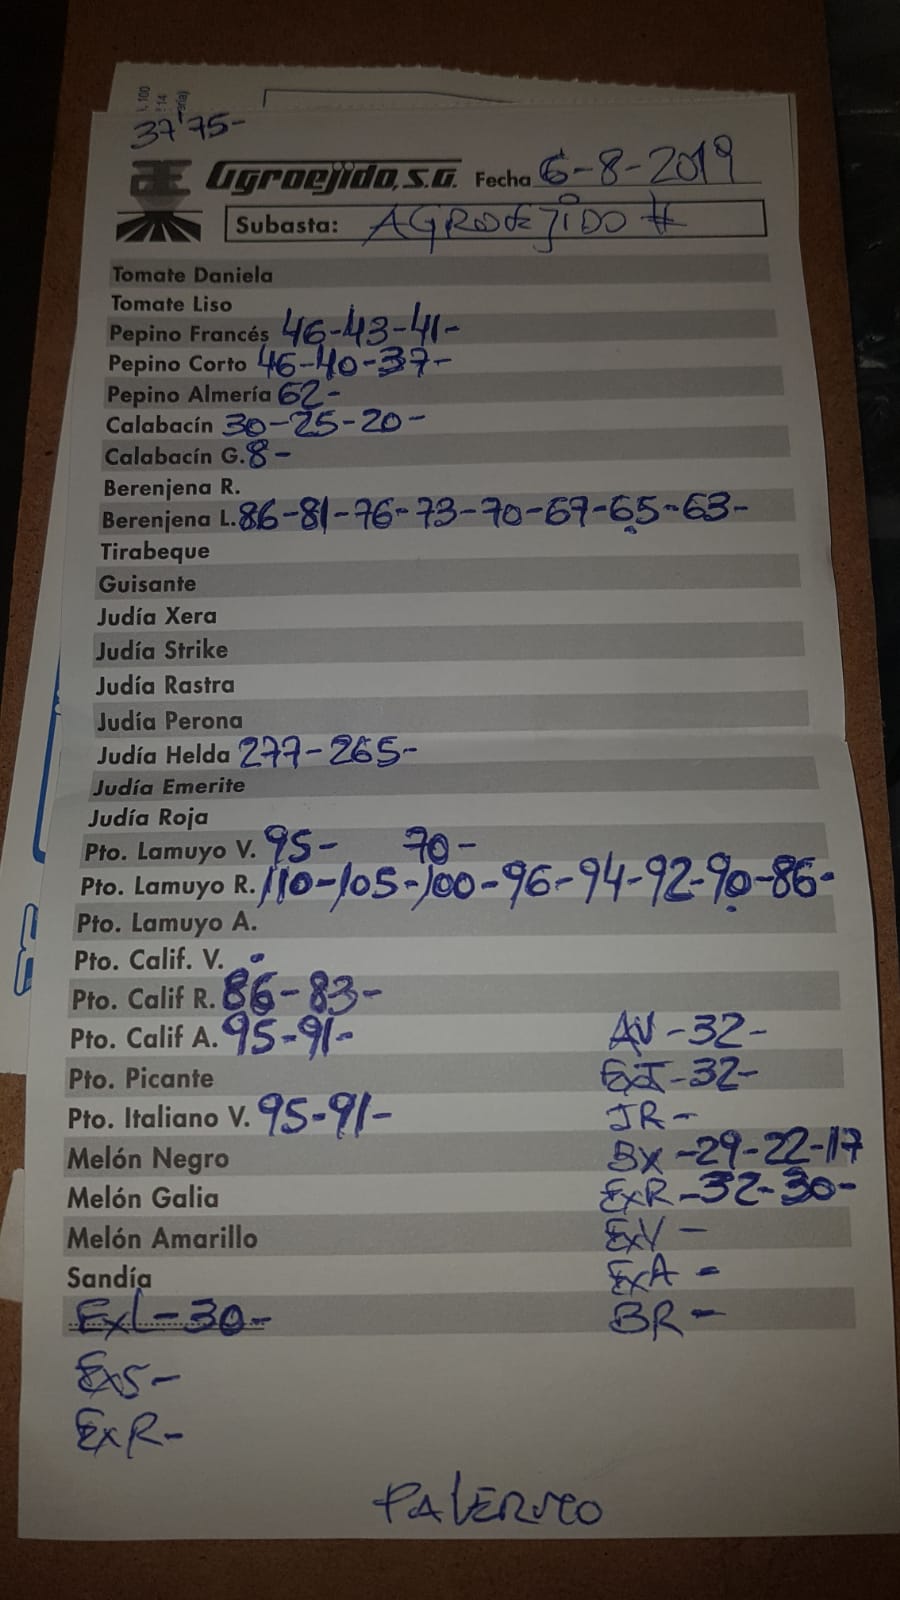 , 100
14
37'75-
Agroejido, S.A. Fecha 6-8-2019
Subasta: AGROEJIDO #
Tomate Daniela
Tomate Liso
Pepino Francés 46-43-41-
Pepino Corto 46-40-37-
Pepino Almería 62-
Calabacín 30-25-20-
Calabacín G. 8-
Berenjena R.
Berenjena L. 86-81-76-73-70-67-65-63-
Tirabeque
Guisante
Judía Xera
Judía Strike
Judía Rastra
Judía Perona
Judía Helda 277-265-
Judía Emerite
Judía Roja
Pto. Lamuyo V. 95- 70-
Pto. Lamuyo R. 110-105-100-96-94-92-90-86-
Pto. Lamuyo A.
Pto. Calif. V. -
Pto. Calif R. 86-83-
Pto. Calif A. 95-91-
AV-32-
Pto. Picante
ExI-32-
Pto. Italiano V. 95-91-
JR-
Melón Negro
BX-29-22-17
Melón Galia
ExR-32-30-
Melón Amarillo
ExV-
Sandía
ExA-
ExL-30-
BR-
ExS-
ExR-
PALERMO